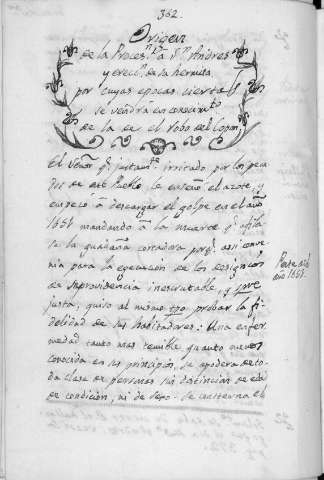 362.
Origen
de la Proces.n a S.n Andres
y erecc.n de la hermita,
por cuyas epocas ciertas
se vendrá en conocim.to
de la de el robo del Copon,
El Señor q.e justam.te irritado por los peca
dos de este Pueblo, le enseñó el azote, y
empezó á descargar el golpe en el año
1651 mandando á la muerte q.e afila
se la guadaña cortadora porq.e assi conve
nia para la execucion de los designios
de su providencia inescrutable, y
justa; quiso al mismo tpo probar la fi
delidad de sus habitadores: Una enfer
medad tanto mas temible quanto menos
conocida en su principio, se apodera de to
da clase de personas sin distincion de edad
de condicion, ni de sexo. Se consterna el
Peste del
año 1651.